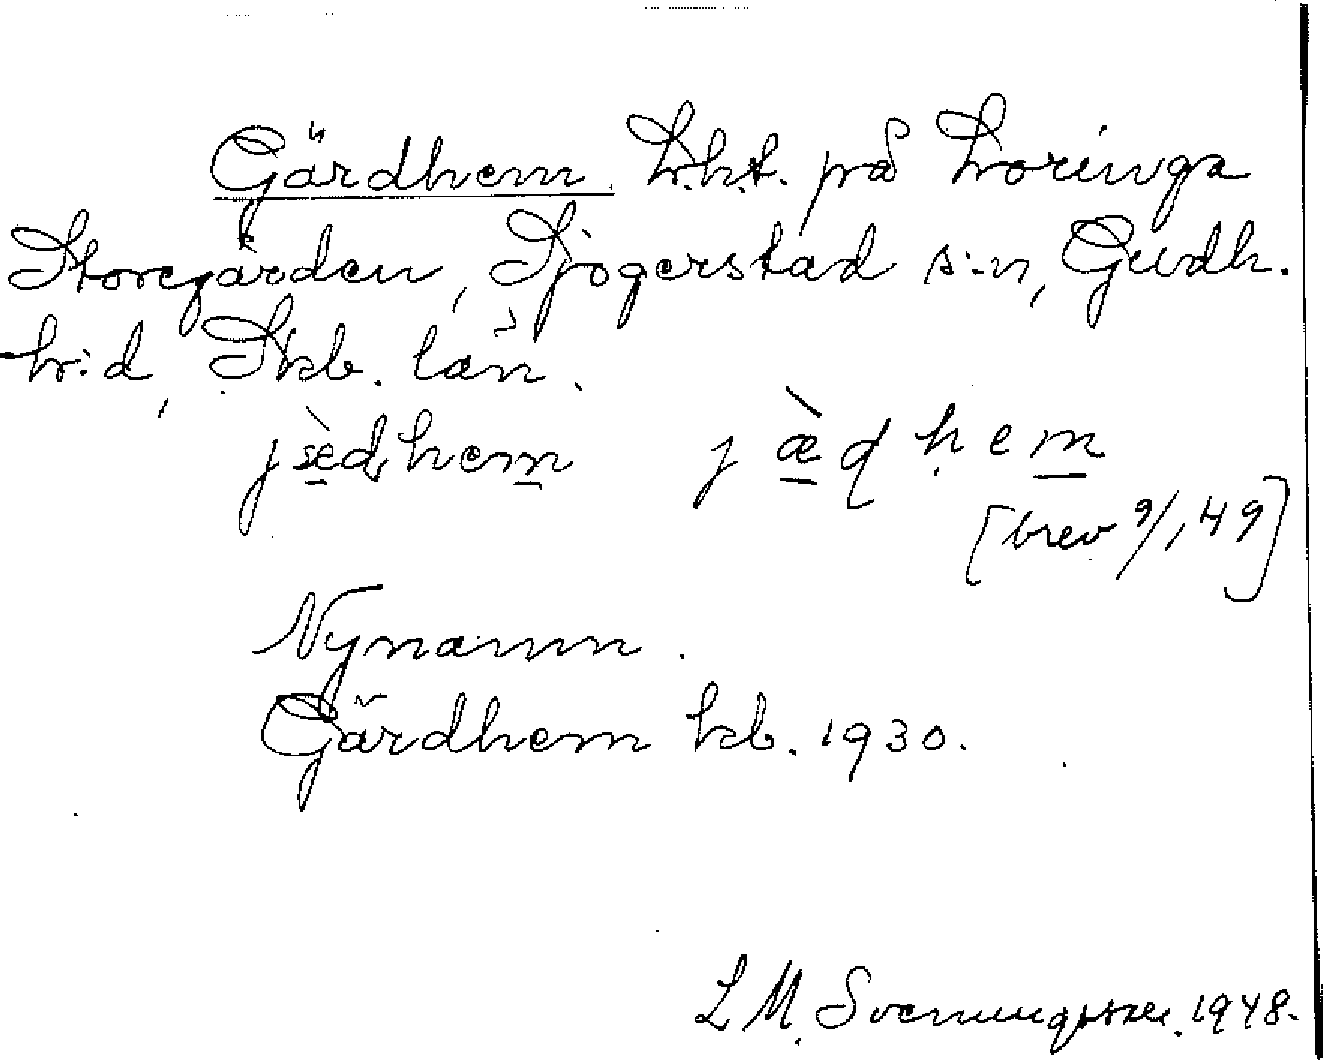 Gärdhem l.h.t. på Loringa
Storegården, Sjogerstad s:n, Gudh.
h:d, Skb. län.
jæ̀dhem jæ̀dhem
[brev 9/1,49]
Nynamn.
Gärdhem kb. 1930.
L M. Svenungsson. 1948.